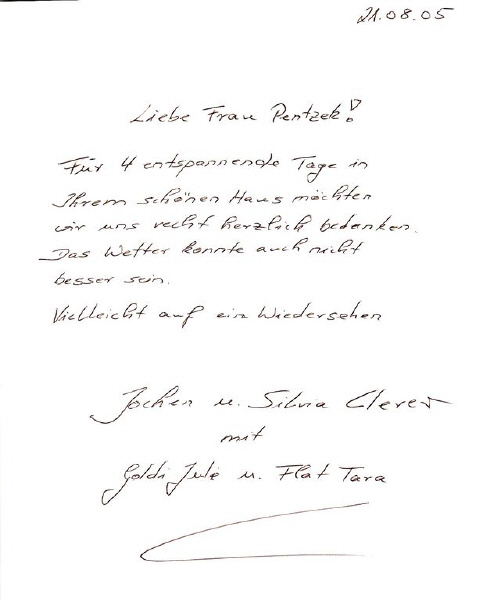 21.08.05
Liebe Frau Pentzek!
Für 4 entspannende Tage in
Ihrem schönen Haus möchten
wir uns recht herzlich bedanken.
Das Wetter konnte auch nicht
besser sein.
Vielleicht auf ein Wiedersehen
Jochen u. Silvia Clever
mit
Goldi Jule u. Flat Tara